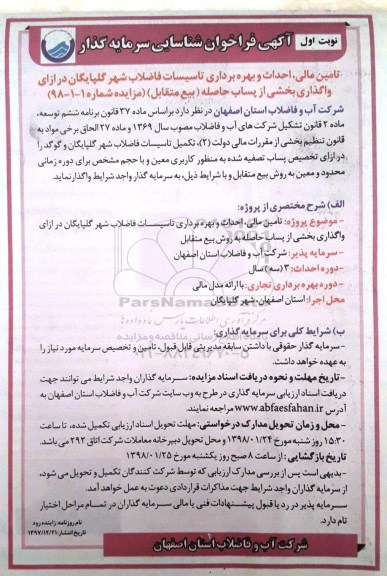 نوبت اول
آگهی فراخوان شناسایی سرمایه گذار
تامین مالی، احداث و بهره برداری تاسیسات فاضلاب شهر گلپایگان در ازای
واگذاری بخشی از پساب حاصله (بیع متقابل) (مزایده شماره ۱-۱-۹۸)
شرکت آب و فاضلاب استان اصفهان در نظر دارد براساس ماده ۲۷ قانون برنامه ششم توسعه،
ماده ۲ قانون تشکیل شرکت های آب و فاضلاب مصوب سال ۱۳۶۹ و ماده ۲۷ الحاق برخی مواد به
قانون تنظیم بخشی از مقررات مالی دولت (۲)، تکمیل تاسیسات فاضلاب شهر گلپایگان و گوگد را
در ازای تخصیص پساب تصفیه شده به منظور کاربری معین و با حجم مشخص برای دوره زمانی
محدود و معین به روش بیع متقابل و با شرایط ذیل، به سرمایه گذار واجد شرایط واگذار نماید.
الف) شرح مختصری از پروژه:
- موضوع پروژه: تامین مالی، احداث و بهره برداری تاسیسات فاضلاب شهر گلپایگان در ازای
واگذاری بخشی از پساب حاصله به روش بیع متقابل
- سرمایه پذیر: شرکت آب و فاضلاب استان اصفهان
- دوره احداث: ۳ (سه) سال
- دوره بهره برداری تجاری: با ارائه مدل مالی
محل اجرا: استان اصفهان، شهر گلپایگان
ب) شرایط کلی برای سرمایه گذاری:
- سرمایه گذار حقوقی با داشتن سابقه مدیریتی قابل قبول، تامین و تخصیص سرمایه مورد نیاز را
به عهده خواهد داشت.
- تاریخ مهلت و نحوه دریافت اسناد مزایده: سرمایه گذاران واجد شرایط می توانند جهت
دریافت اسناد ارزیابی سرمایه گذاری در طرح به وب سایت شرکت آب و فاضلاب استان اصفهان به
آدرس www.abfaesfahan.ir مراجعه نمایند.
- محل و زمان تحویل مدارک درخواستی: مهلت تحویل اسناد ارزیابی تکمیل شده، تا ساعت
۱۵:۳۰ روز شنبه مورخ ۱۳۹۸/۰۱/۲۴ و محل تحویل دبیرخانه معاملات شرکت اتاق ۲۹۲ می باشد.
تاریخ بازگشایی: از ساعت ۸ صبح روز یکشنبه مورخ ۱۳۹۸/۰۱/۲۵
- بدیهی است پس از بررسی مدارک ارزیابی که توسط شرکت کنندگان تکمیل و تحویل می شود،
از سرمایه گذاران واجد شرایط جهت مذاکرات قراردادی دعوت به عمل خواهد آمد.
- سرمایه پذیر در رد یا قبول پیشنهادات فنی یا مالی سرمایه گذاران در تمام مراحل اختیار
تام دارد.
نام روزنامه: زاینده رود
تاریخ انتشار: ۱۳۹۷/۱۲/۲۱
شرکت آب و فاضلاب استان اصفهان